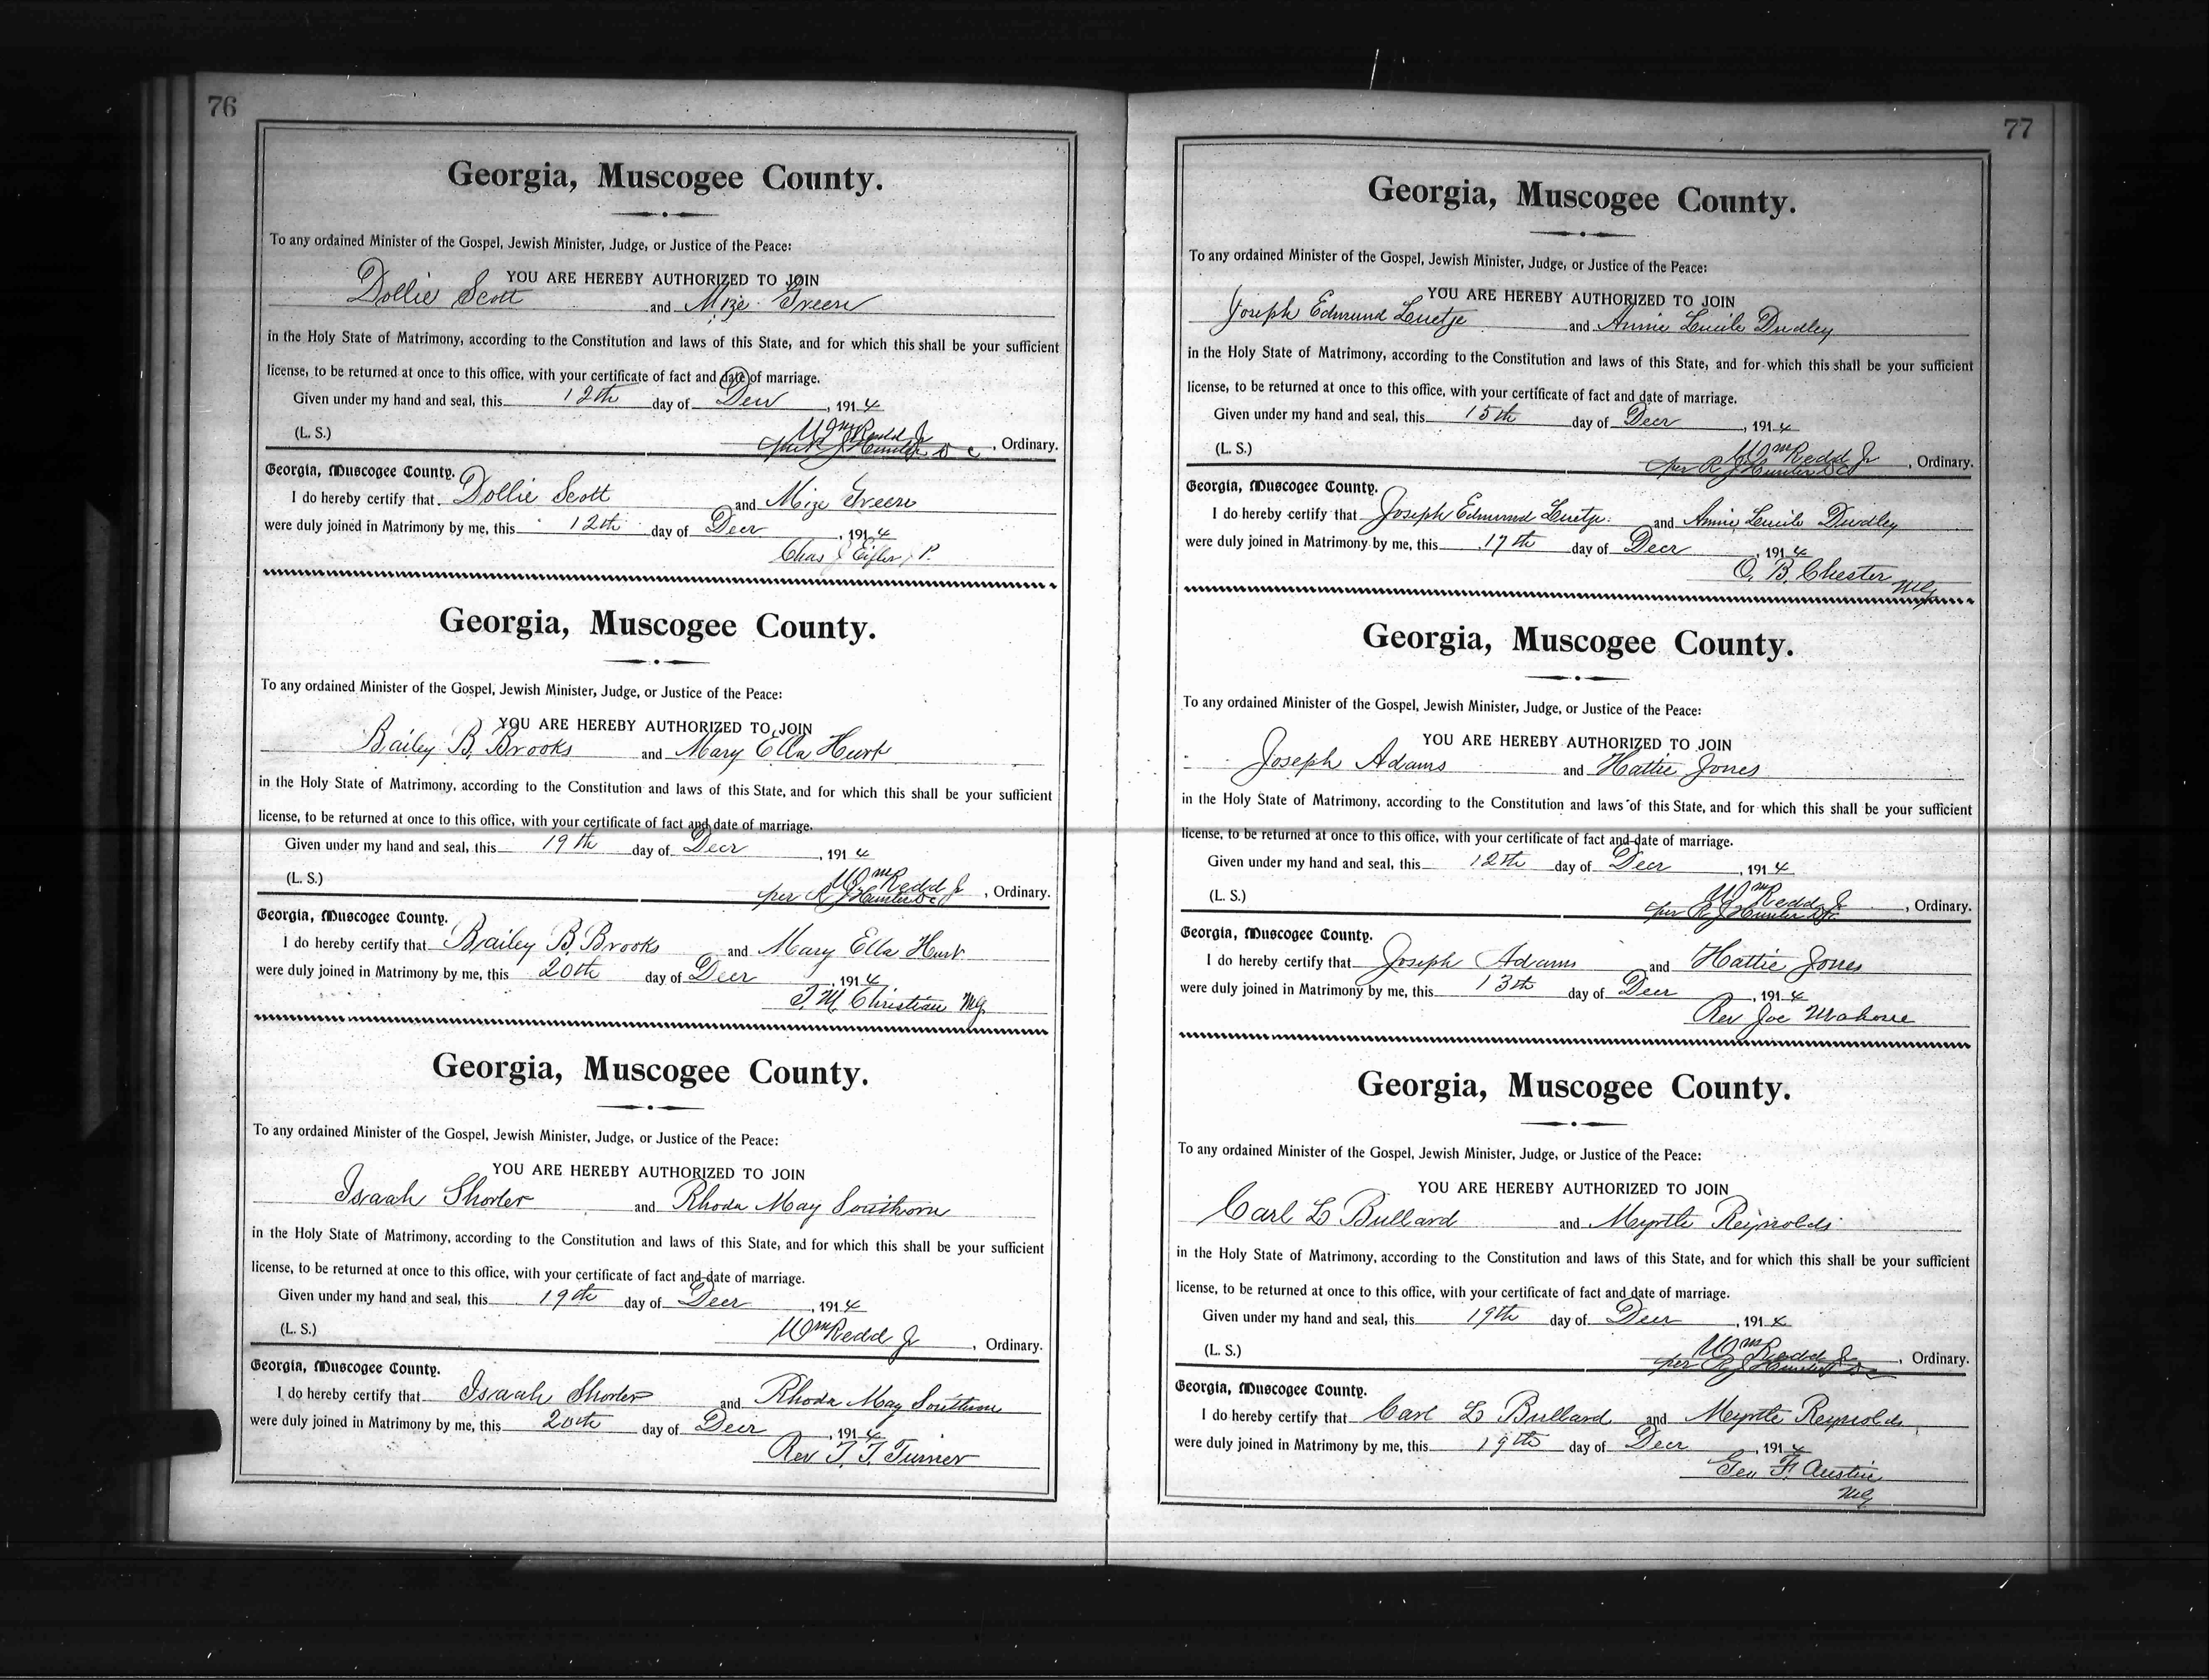 76
Georgia, Muscogee County.
To any ordained Minister of the Gospel, Jewish Minister, Judge, or Justice of the Peace:
YOU ARE HEREBY AUTHORIZED TO JOIN
Dollie Scott and Mize Green
in the Holy State of Matrimony, according to the Constitution and laws of this State, and for which this shall be your sufficient
license, to be returned at once to this office, with your certificate of fact and date of marriage.
Given under my hand and seal, this 12th day of Decr, 1914
(L. S.) Wm Redd Jr
per R J Hunter D C, Ordinary.
Georgia, Muscogee County.
I do hereby certify that Dollie Scott and Mize Green
were duly joined in Matrimony by me, this 12th day of Decr, 1914
Chas J
Georgia, Muscogee County.
To any ordained Minister of the Gospel, Jewish Minister, Judge, or Justice of the Peace:
YOU ARE HEREBY AUTHORIZED TO JOIN
Bailey B. Brooks and Mary Ella Hurt
in the Holy State of Matrimony, according to the Constitution and laws of this State, and for which this shall be your sufficient
license, to be returned at once to this office, with your certificate of fact and date of marriage.
Given under my hand and seal, this 19th day of Decr, 1914
(L. S.) Wm Redd Jr
per R J Hunter DC, Ordinary.
Georgia, Muscogee County.
I do hereby certify that Bailey B. Brooks and Mary Ella Hurt
were duly joined in Matrimony by me, this 20th day of Decr, 1914
T. M. Christian MG
Georgia, Muscogee County.
To any ordained Minister of the Gospel, Jewish Minister, Judge, or Justice of the Peace:
YOU ARE HEREBY AUTHORIZED TO JOIN
Isaah Shorter and Rhoda May Southern
in the Holy State of Matrimony, according to the Constitution and laws of this State, and for which this shall be your sufficient
license, to be returned at once to this office, with your certificate of fact and date of marriage.
Given under my hand and seal, this 19th day of Decr, 1914
(L. S.) Wm Redd Jr, Ordinary.
Georgia, Muscogee County.
I do hereby certify that Isaah Shorter and Rhoda May Southern
were duly joined in Matrimony by me, this 20th day of Decr, 1914
Rev T. T. Turner
77
Georgia, Muscogee County.
To any ordained Minister of the Gospel, Jewish Minister, Judge, or Justice of the Peace:
YOU ARE HEREBY AUTHORIZED TO JOIN
Joseph Edmund Luetje and Annie Lucile Dudley
in the Holy State of Matrimony, according to the Constitution and laws of this State, and for which this shall be your sufficient
license, to be returned at once to this office, with your certificate of fact and date of marriage.
Given under my hand and seal, this 15th day of Decr, 1914
(L. S.) Wm Redd Jr
per R J Hunter DC, Ordinary.
Georgia, Muscogee County.
I do hereby certify that Joseph Edmund Luetje and Annie Lucile Dudley
were duly joined in Matrimony by me, this 17th day of Decr, 1914
O. B. Chester MG
Georgia, Muscogee County.
To any ordained Minister of the Gospel, Jewish Minister, Judge, or Justice of the Peace:
YOU ARE HEREBY AUTHORIZED TO JOIN
Joseph Adams and Hattie Jones
in the Holy State of Matrimony, according to the Constitution and laws of this State, and for which this shall be your sufficient
license, to be returned at once to this office, with your certificate of fact and date of marriage.
Given under my hand and seal, this 12th day of Decr, 1914
(L. S.) Wm Redd Jr
per R J Hunter DC, Ordinary.
Georgia, Muscogee County.
I do hereby certify that Joseph Adams and Hattie Jones
were duly joined in Matrimony by me, this 13th day of Decr, 1914
Rev Joe Mahone
Georgia, Muscogee County.
To any ordained Minister of the Gospel, Jewish Minister, Judge, or Justice of the Peace:
YOU ARE HEREBY AUTHORIZED TO JOIN
Carl L Bullard and Myrtle Reynolds
in the Holy State of Matrimony, according to the Constitution and laws of this State, and for which this shall be your sufficient
license, to be returned at once to this office, with your certificate of fact and date of marriage.
Given under my hand and seal, this 19th day of Decr, 1914
(L. S.) Wm Redd Jr
per R J Hunter D C, Ordinary.
Georgia, Muscogee County.
I do hereby certify that Carl L Bullard and Myrtle Reynolds
were duly joined in Matrimony by me, this 19th day of Decr, 1914
Geo F. Austin
MG